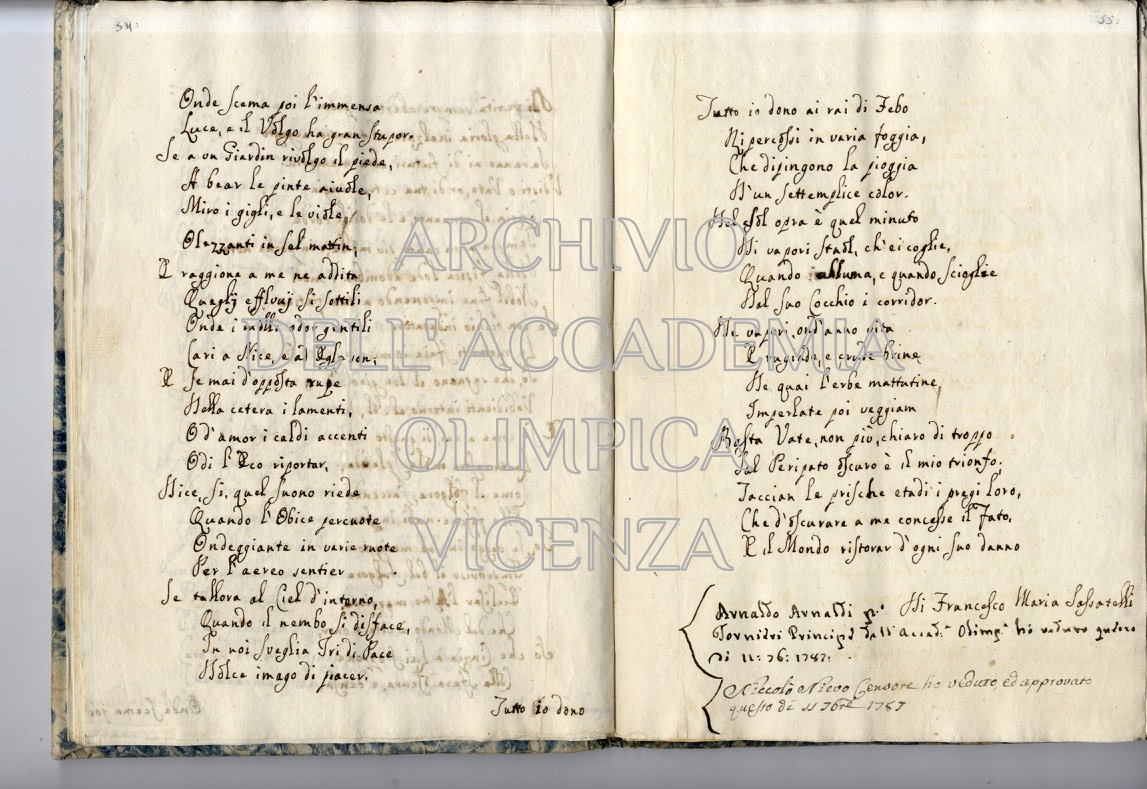 54:
Onde scema poi l'immensa
Luce, e il Volgo ha gran stupor.
Se a un Giardin rivolgo il piede,
A bear le pinte aivole,
Miro i gigli, e le viole,
Olezzanti in sul mattin;
E raggiona a me ne addita
Queglj effluvj sì sottili
Onde i odor gentili
Cari a Nice, e al
E se mai d'opposta rupe
Della cetera i lamenti,
O d'amor i caldi accenti
Odi l'Eco riportar,
Dice, sì, quel suono riede
Quando l'Obice percuote
Ondeggiante in varie ruote
Per l'aereo sentier
Se tallora al Ciel d'intorno,
Quando il nembo si disface,
In noi sveglia Iri di Pace
Dolce imago di piacer.
Tutto io dono
55:
Tutto io dono ai rai di Febo
Ripercossi in varia foggia,
Che dipingono la pioggia
D'un settemplice color.
Del sol opra è quel minuto
Di vapori stuol, ch'ei coglie,
Quando alluma, e quando scioglie
Dal suo Cocchio i corridor.
De vapori, ond'anno vita
E rugiade, e crude brine
De quai l'erbe mattutine,
Imperlate poi veggiam
Basta Vate, non più, chiaro di troppo
Sul Peripato oscuro è il mio trionfo;
Taccian le prische etadi i pregi loro,
Che d'oscurare a me concesse il Fato,
E il Mondo ristorar d'ogni suo danno
Arnaldo Arnaldi Di Francesco Maria Sassatelli
Principe dell' Accad.ª Olimp.ª ho veduto questo
di 11: 76: 1787:
Niccolò Nievo Censore ho veduto, ed approvato
questo dì 11 7bre 1787
ARCHIVIO
DELL'ACCADEMIA
OLIMPICA
VICENZA